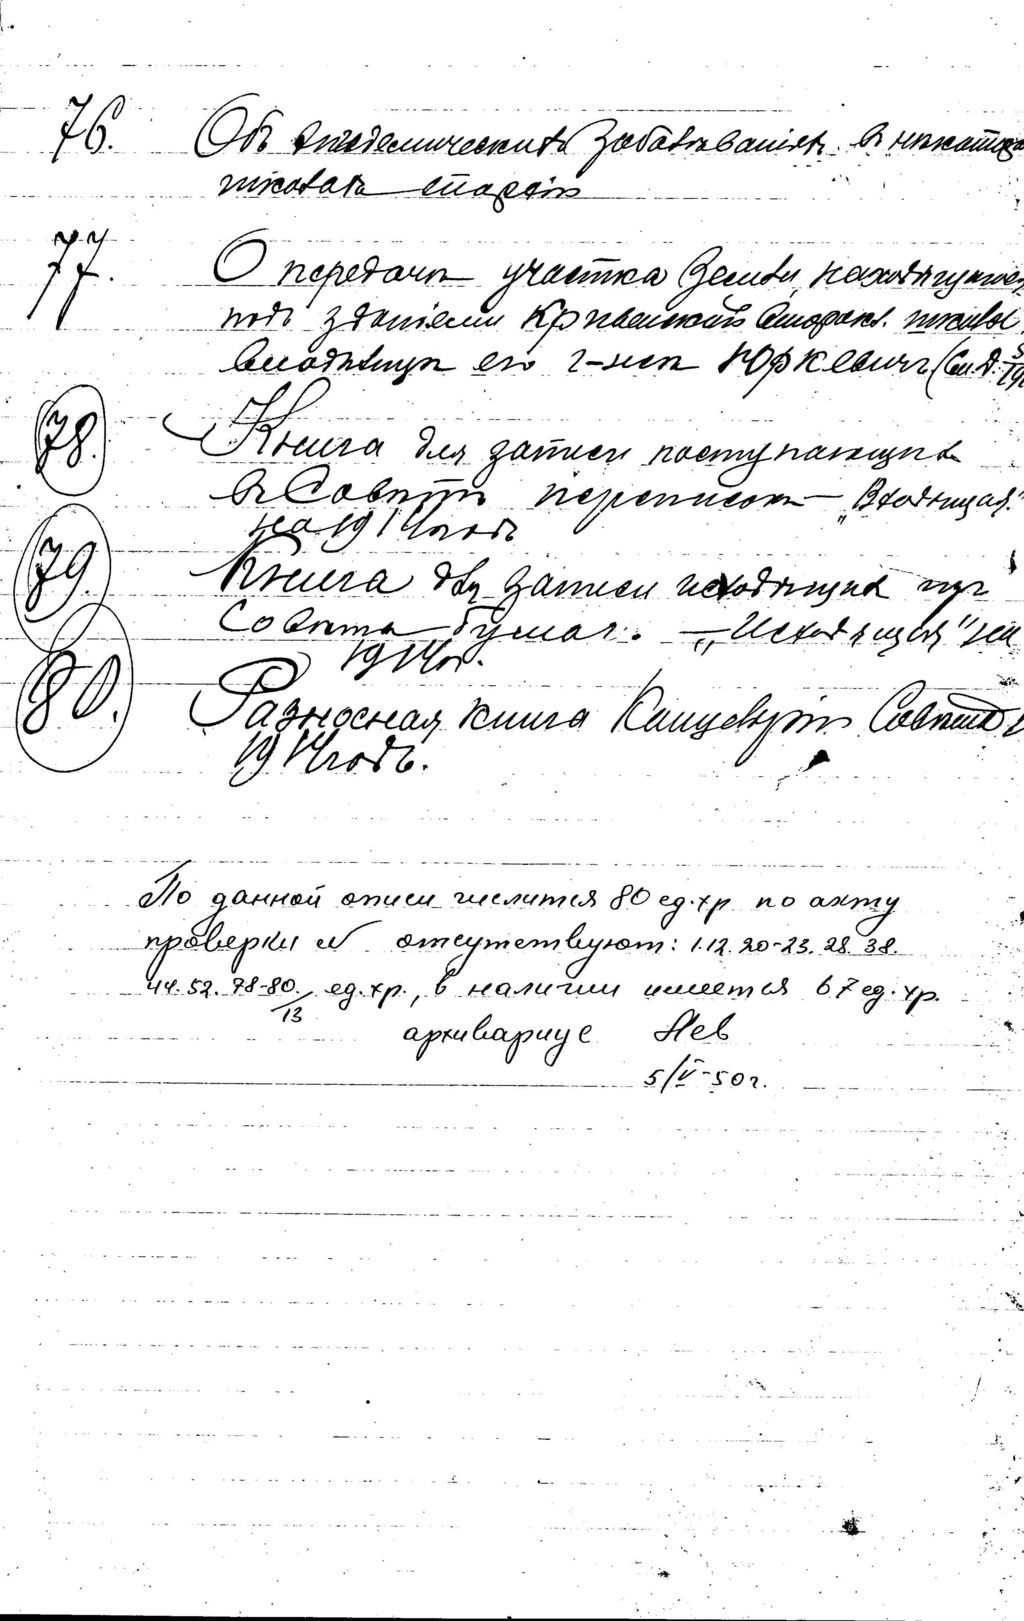 76. Объ эпидемическихъ заболѣванiяхъ въ нѣкотор
школахъ епархiи
77. О передачѣ участка земли, находящуюся
подъ зданiями Крѣвскихъ школы
г-жею Юркевичъ (См. Д.
78. Книга для записи поступающихъ
въ Совѣтъ переписокъ — „Входящая"
на 1914 годъ
79. Книга для записи исходящихъ изъ
Совѣта бумагъ. — „Исходящая" на
1914 г.
80. Разносная книга Канцелярiи Совѣта
1914 годъ.
По данной описи числится 80 ед. хр. по акту
проверки № отсутствуют: 1.12. 20-23. 28. 38.
44. 52. 78-80. ед. хр., в наличии имеется 67 ед. хр.
13
архивариус Лев
5/V-50 г.